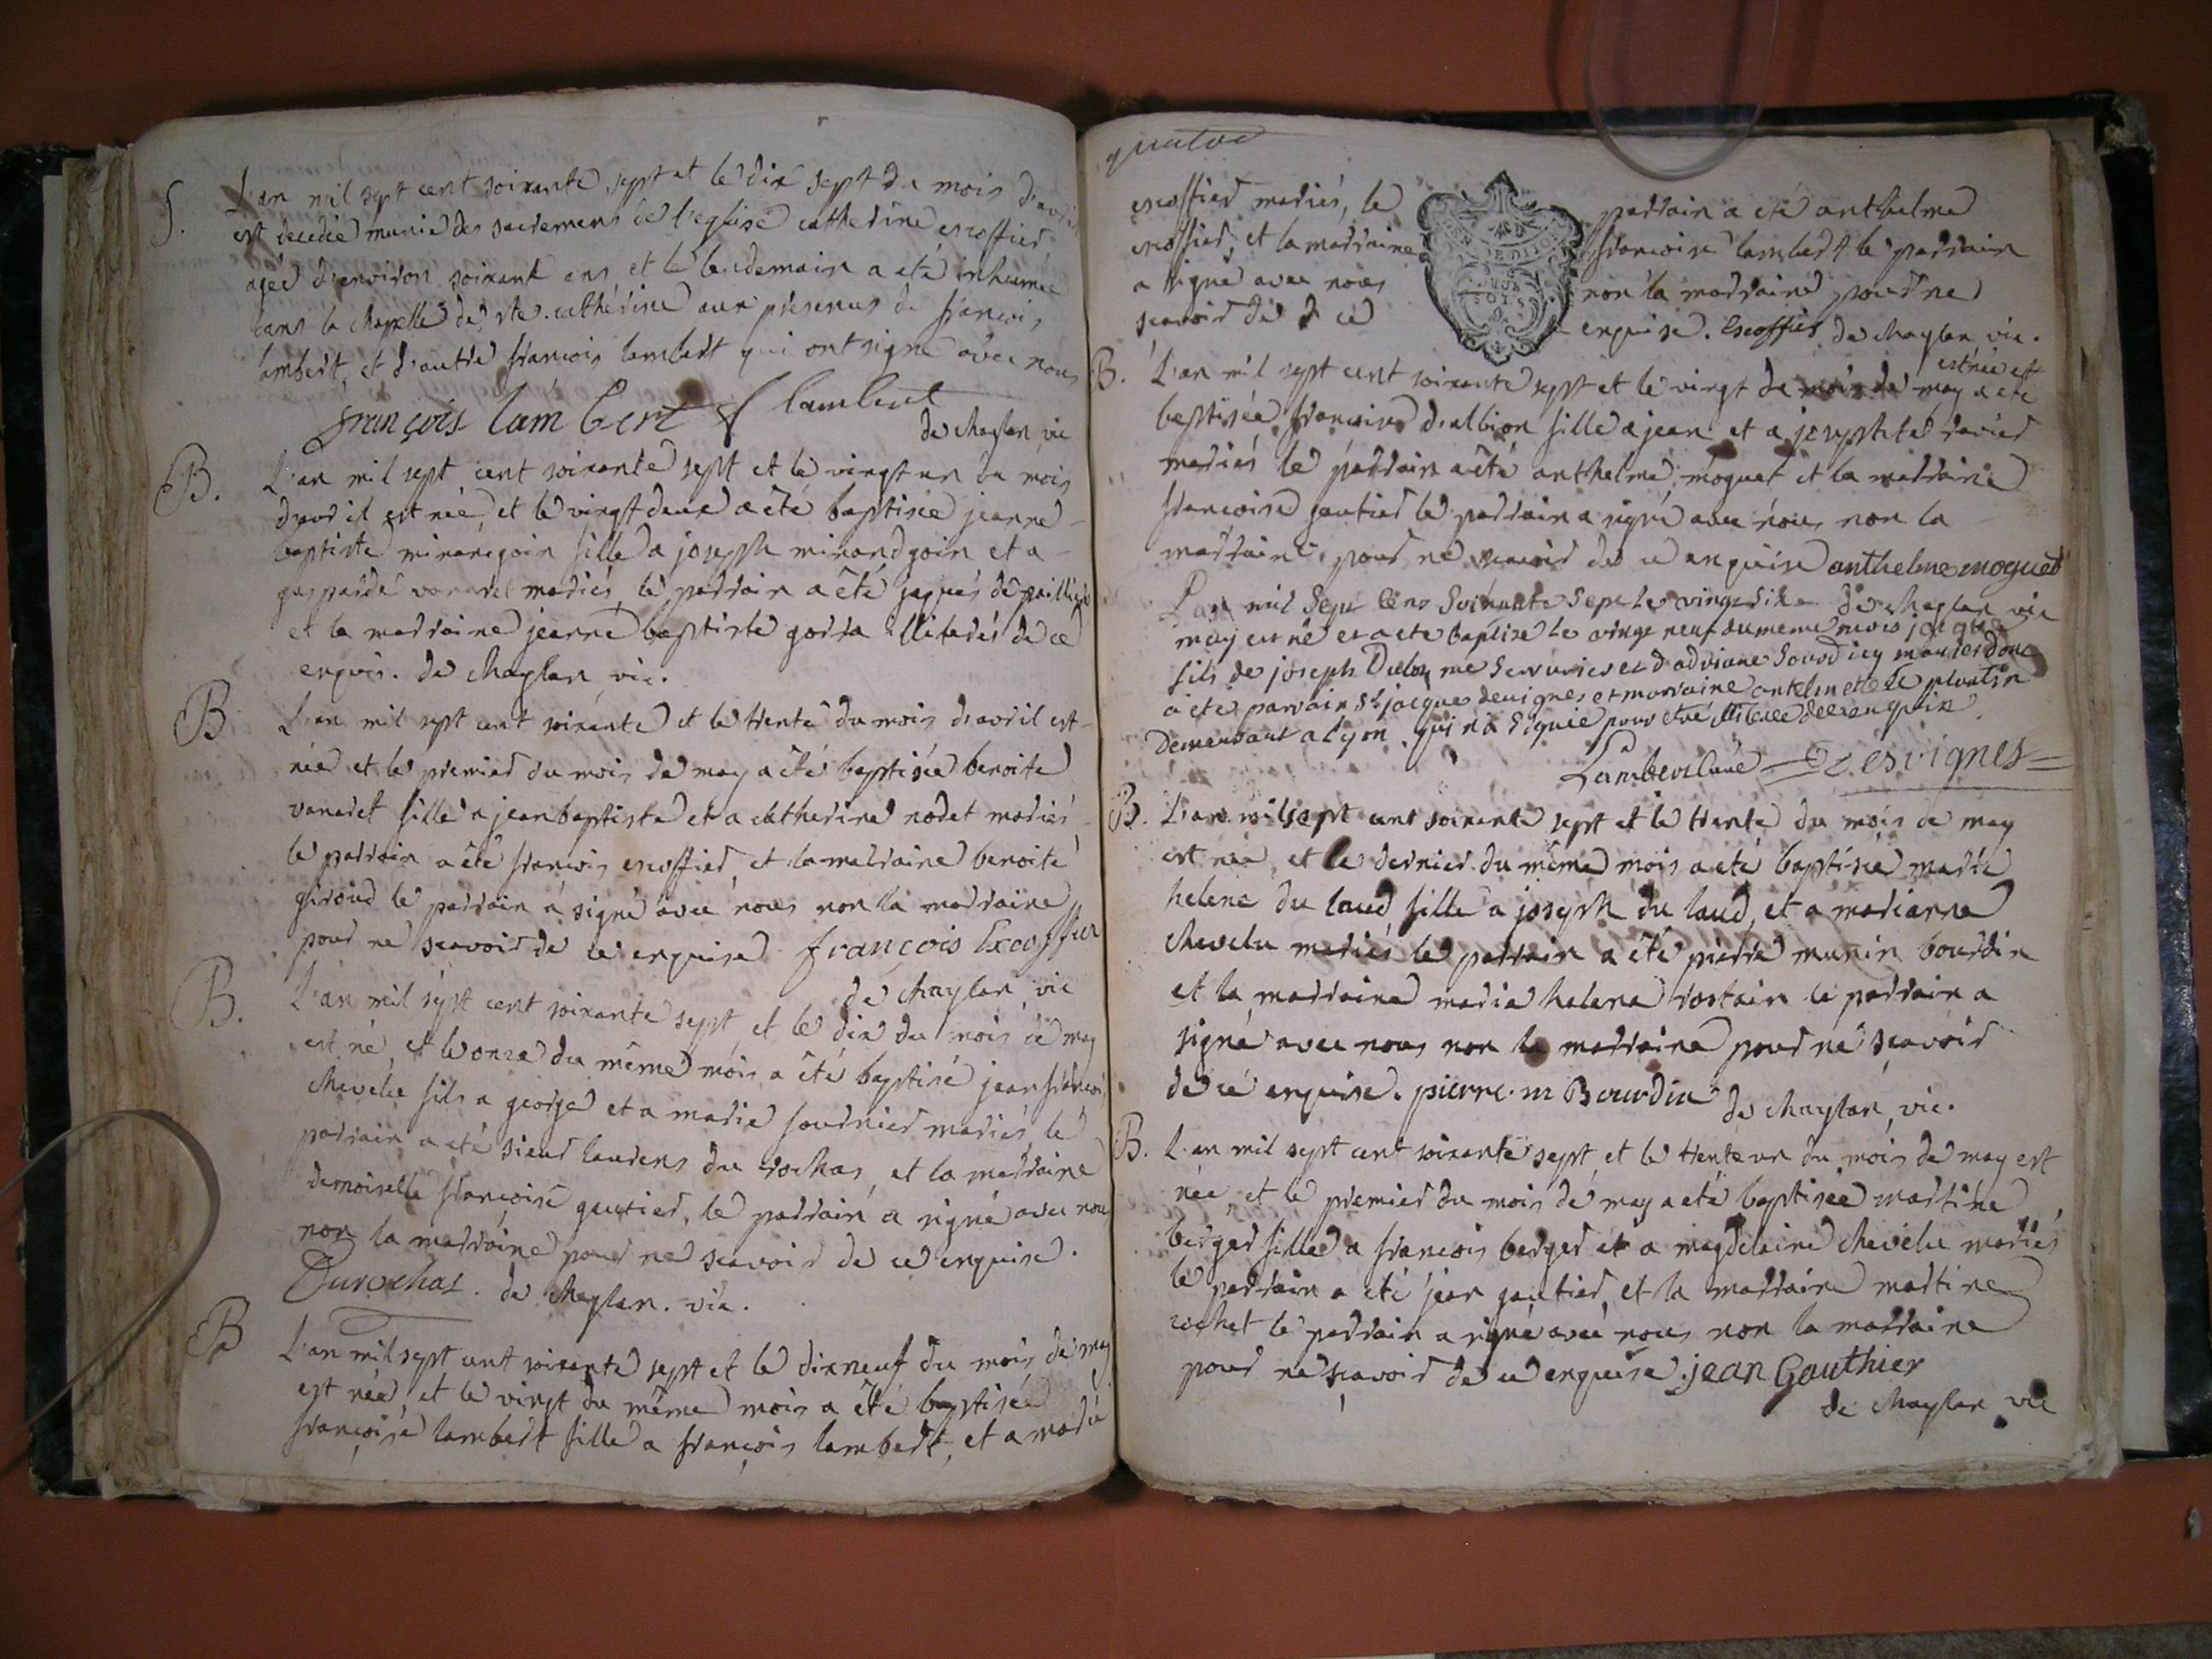 S. L'an mil sept cent soixante sept et le dix sept du mois d'avril
est decedée munie des sacremens de l'eglise catherine escoffier
agée d'environ soixant ans et le lendemain a eté inhumée
dans la chapelle de ste. catherine aux presences de francois
lambert, et d'autre francois lambert qui ont signe avec nous
françois lambert f lambert
de chaylan vic
B. L'an mil sept cent soixante sept et le vingt un du mois
d'avril est née, et le vingt deux a été baptisée jeanne
baptiste minangoin fille a joseph minandgoin et a
gasparde vanaret mariés, le parrain a été jaques de
et la marraine jeanne baptiste gorra illiterés de ce
enquis. de chaylan, vic.
B L'an mil sept cent soixante et le trente du mois d'avril est
née et le premier du mois de may a été baptisée benoite
vanaret fille a jean baptiste et a catherine nodet mariés
le parrain a été francois escoffier, et la marraine benoite
giroud le parrain a signé avec nous non la marraine
pour ne scavoir de ce enquise françois Excoffier
de chaylan, vic
B. L'an mil sept cent soixante sept, et le dix du mois de may
est né, et le onze du même mois a été baptisé jean francois
chevelu fils a george et a marie fournier mariés, le
parrain a eté sieur laurens du rochas, et la marraine
demoiselle francoise gautier, le parrain a signé avec nous
non la marraine pour ne scavoir de ce enquise.
Durochas. de chaylan. vic.
B L'an mil sept cent soixante sept et le dixneuf du mois de may
est née, et le vingt du même mois a été baptisée
françoise lambert fille a françois lambert, et a marie
escoffier mariés, le parrain a eté anthelme
escoffier, et la marraine francoise lambert le parrain
a signé avec nous non la marraine pour ne
scavoir de ce enquise. Escoffier de chaylan vic.
B. L'an mil sept cent soixante sept et le vingt du mois de may est née et a eté
baptisée francoise d'albion fille a jean et a josephte ravier
mariés le parrain a été anthelme moquet et la marraine
francoise gautier le parrain a signé avec nous non la
marraine pour ne scavoir de ce enquise anthelme moquet
de chaylan vic
L'an mil sept cens soixante sept le vingt six
may est né et a ete baptise le vingt neuf du meme mois jacque
fils de joseph me serrurier et d'adriane mariés dont
a eté parrain sr jacque devignes et marraine antelmette
demeurant a lyon qui n'a signée pour etre illiterée de ce enquise
Lambert curé Desvignes
B. L'an mil sept cent soixante sept et le trente du mois de may
est née, et le dernier du même mois a eté baptisée marie
helene du laud fille a joseph du laud, et a marianne
chevelu mariés le parrain a été pierre munin bourdin
et la marraine marie helene rostain le parrain a
signé avec nous non la marraine pour ne scavoir
de ce enquise. pierre. m Bourdin de chaylan, vic.
B. L'an mil sept cent soixante sept, et le trente un du mois de may est
née, et le premier du mois de may a eté baptisée martine
berger fille a francois berger et a magdelaine chevelu mariés
le parrain a eté jean gautier, et la marraine martine
rochet le parrain a signé avec nous non la marraine
pour ne scavoir de ce enquise. jean Gauthier
de chaylan vic